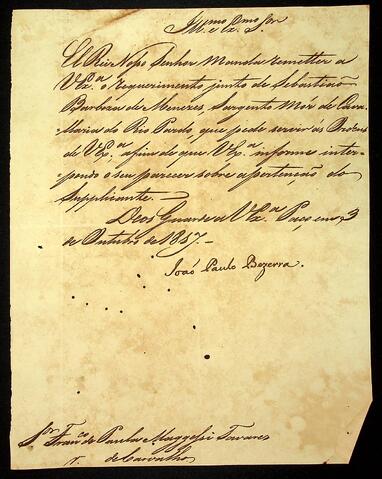 Ill.mo e Ex.mo Sr.
El Rei Nosso Senhor Manda remetter a
V Ex.a o requerimento junto de Sebastião
Barboza de Menezes, Sargento Mor de Cava-
laria do Rio Pardo, que pede servir as Ordens
de V Ex.a, afim de que V Ex.a informe inter-
pondo o seu parecer sobre a pertenção do
Supplicante.
Deos Guarde a V Ex.a Paço em 3
de Outubro de 1817.
João Paulo Bezerra.
Sr. Franco de Paula Maggessi Tavares
de Carvalho